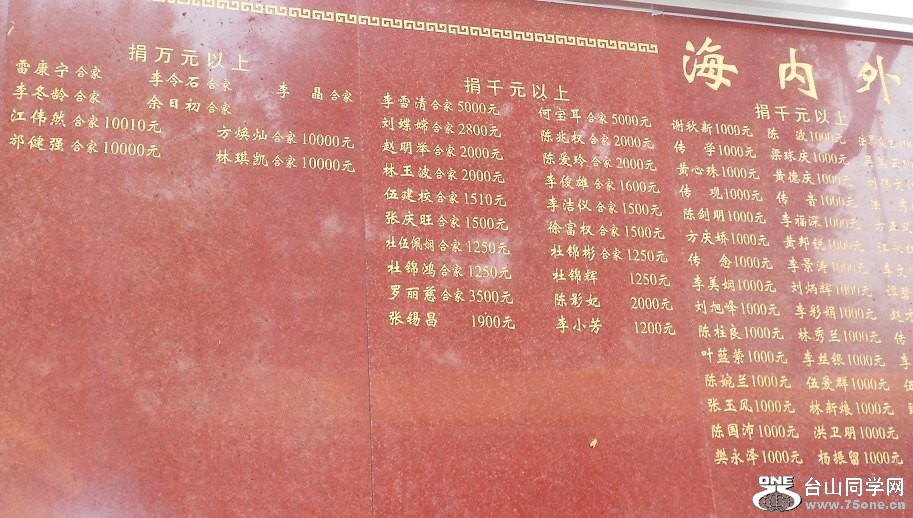 海内外
捐万元以上
雷康宁合家 李令石合家 李晶合家
李冬龄合家 余日初合家
江伟然合家10010元 方焕灿合家10000元
邬健强合家10000元 林琪凯合家10000元
捐千元以上
李雷清合家5000元 何宝耳合家5000元
刘蝶嫦合家2800元 陈兆权合家2000元
赵明举合家2000元 陈爱玲合家2000元
林玉波合家2000元 李俊雄合家1600元
伍建校合家1510元 李洁仪合家1500元
张庆旺合家1500元 徐富权合家1500元
杜伍佩娴合家1250元 杜锦彬合家1250元
杜锦鸿合家1250元 杜锦辉 1250元
罗丽慈合家3500元 陈影妃 2000元
张锡昌 1900元 李小芳 1200元
捐千元以上
谢秋新1000元 陈波1000元
传学1000元 梁球庆1000元
黄心珠1000元 黄德庆1000元
传观1000元 传音1000元
陈剑明1000元 李福深1000元
方庆娇1000元 黄邦锐1000元
传念1000元 李景涛1000元
李美娴1000元 刘炳辉1000元
刘旭峰1000元 李彩娟1000元
陈柱良1000元 林秀兰1000元 传
叶蓝萦1000元 李丝银1000元
陈婉兰1000元 伍爱群1000元
张玉凤1000元 林新娘1000元
陈国沛1000元 洪卫明1000元
樊永泽1000元 杨振留1000元
ONE 台山同学网
www.75one.cn